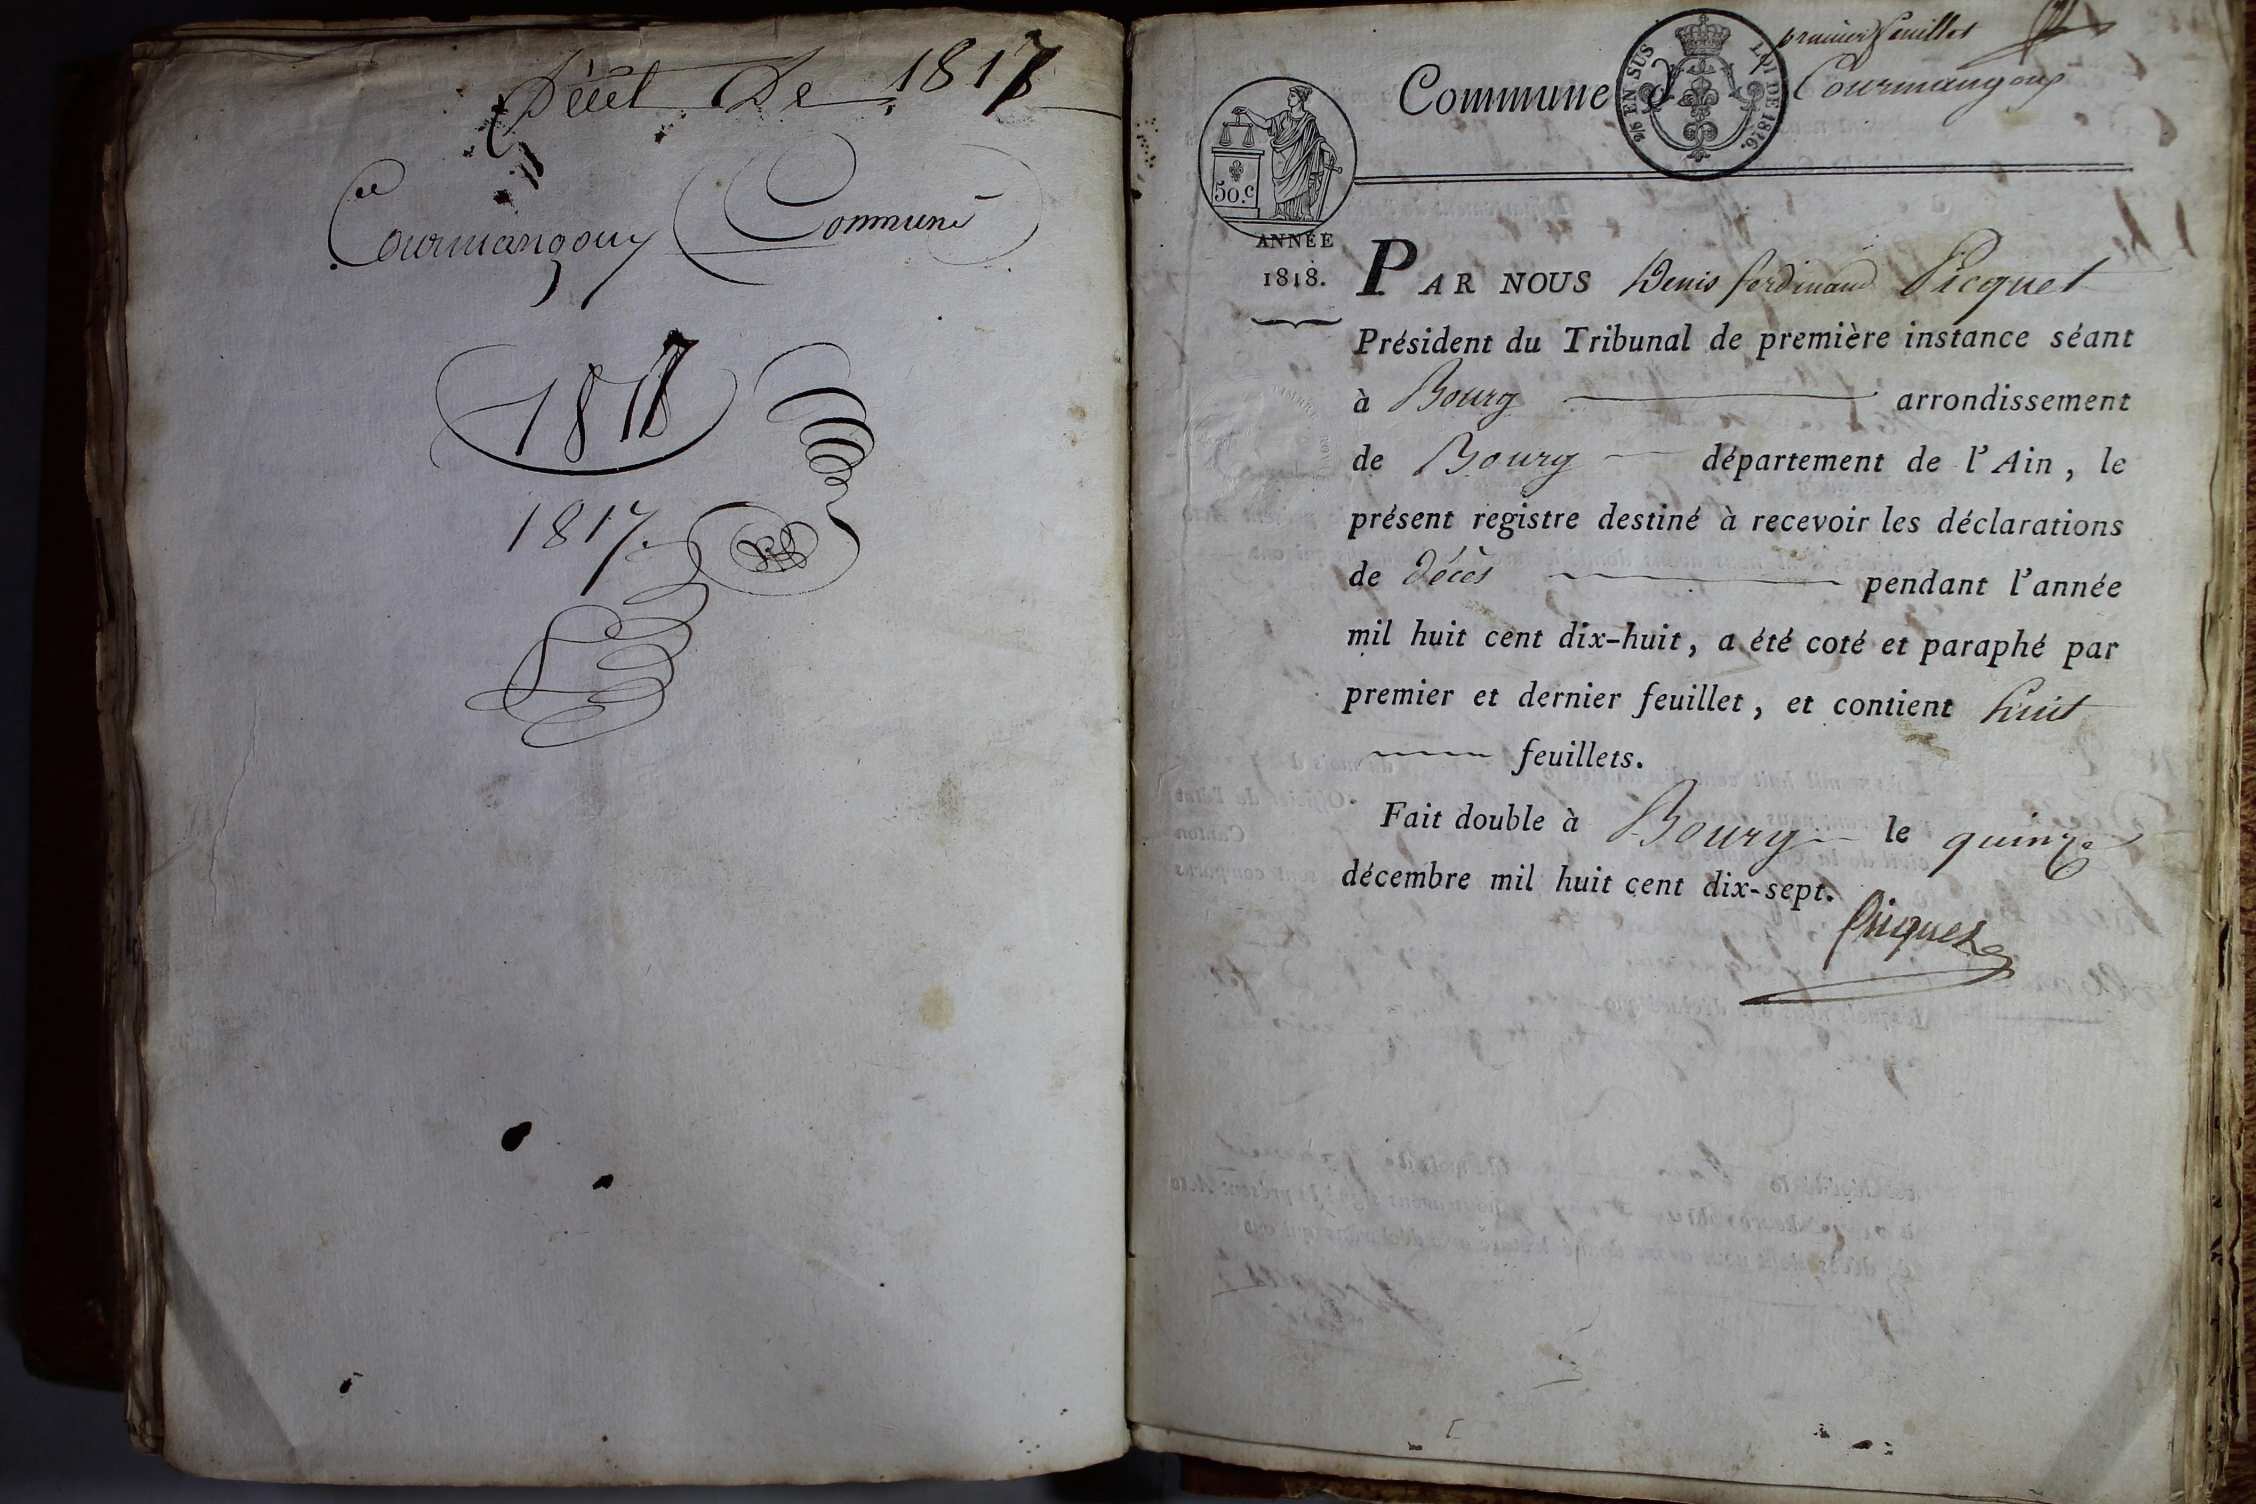 Décet De 1817
Courmangoux Commune
1817
1817.
premier feuillet
Commune de Courmangoux
2/5 EN SUS
LOI DE 1816.
50.c
ANNÉE
1818.
PAR NOUS Denis ferdinand Picquet
Président du Tribunal de première instance séant
à Bourg arrondissement
de Bourg département de l'Ain, le
présent registre destiné à recevoir les déclarations
de décès pendant l'année
mil huit cent dix-huit, a été coté et paraphé par
premier et dernier feuillet, et contient huit
feuillets.
Fait double à Bourg le quinze
décembre mil huit cent dix-sept.
Picquet